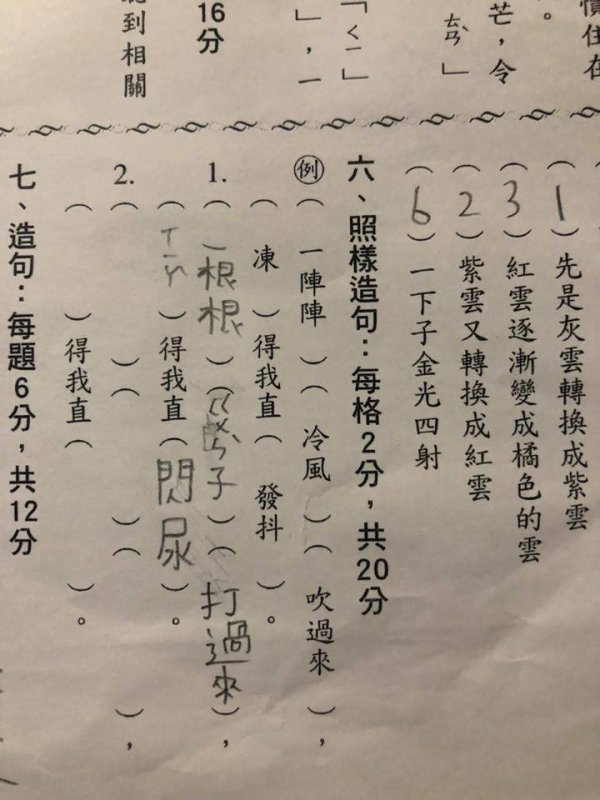 住在
。
芒，令
」
「ㄑㄧ」
」，一
16分
到相關
( 1 )先是灰雲轉換成紫雲
( 3 )紅雲逐漸變成橘色的雲
( 2 )紫雲又轉換成紅雲
( 6 )一下子金光四射
六、照樣造句：每格2分，共20分
例( 一陣陣 )( 冷風 )( 吹過來 )，
( 凍 )得我直( 發抖 )。
1.( 一根根 )( 子 )( 打過來 )，
( )得我直( 閃尿 )。
2.( )( )( )，
( )得我直( )。
七、造句：每題6分，共12分